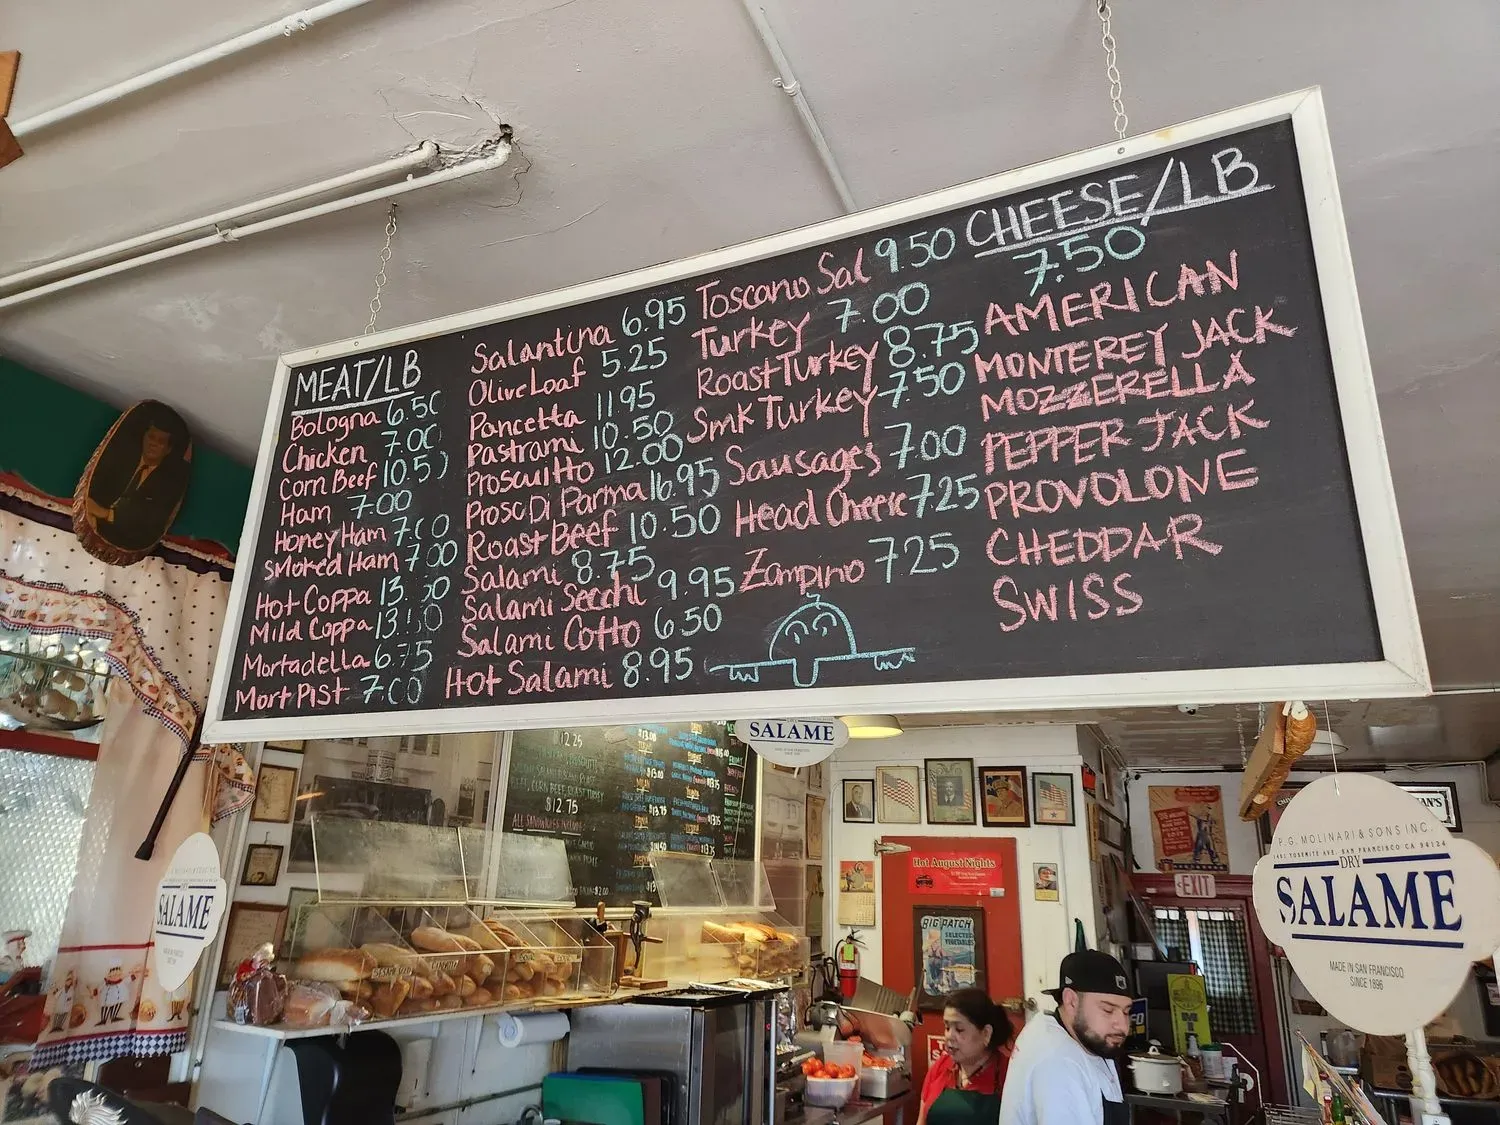 MEAT/LB
Bologna 6.50
Chicken 7.00
Corn Beef 10.50
Ham 7.00
Honey Ham 7.00
Smoked Ham 7.00
Hot Coppa 13.50
Mild Coppa 13.50
Mortadella 6.75
Mort Pist 7.00
Salantina 6.95
Olive Loaf 5.25
Pancetta 11.95
Pastrami 10.50
Proscuitto 12.00
Prosc Di Parma 16.95
Roast Beef 10.50
Salami 8.75
Salami Secchi 9.95
Salami Cotto 6.50
Hot Salami 8.95
Toscano Sal 9.50
Turkey 7.00
Roast Turkey 8.75
Smk Turkey 7.50
Sausages 7.00
Head Cheese 7.25
Zampino 7.25
CHEESE/LB
7.50
AMERICAN
MONTEREY JACK
MOZZERELLA
PEPPER JACK
PROVOLONE
CHEDDAR
SWISS
SALAME
DRY
SALAME
$12.75
Hot August Nights
BIG PATCH
SELECTED
VEGETABLES
EXIT
P.G. MOLINARI & SONS INC.
1401 YOSEMITE AVE. SAN FRANCISCO CA 94124
DRY
SALAME
MADE IN SAN FRANCISCO
SINCE 1896